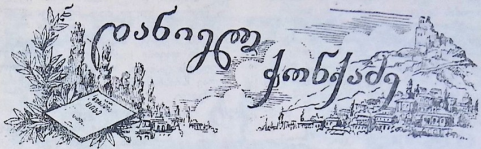 დანიელ
ჭონქაძე